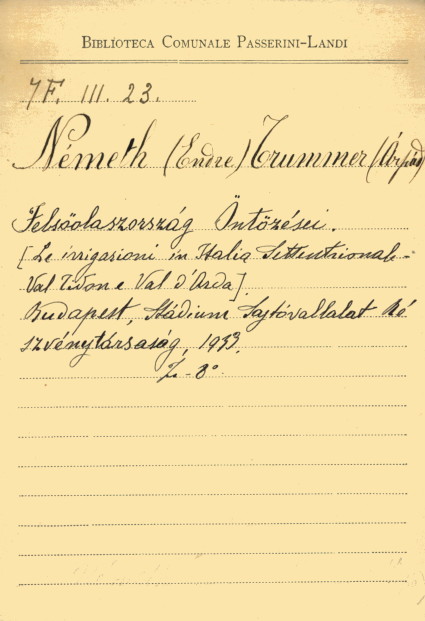 BIBLIOTECA COMUNALE PASSERINI-LANDI
7F. III. 23.
Németh (Endre) Trummer (Árpád)
Felsöolaszország Öntözései.
[Le irrigazioni in Italia Settentrionale-
Val Tidone Val d'Arda]
Budapest, Stádium Sajtóvallalat Ré
szvénytársaság, 1933.
8°